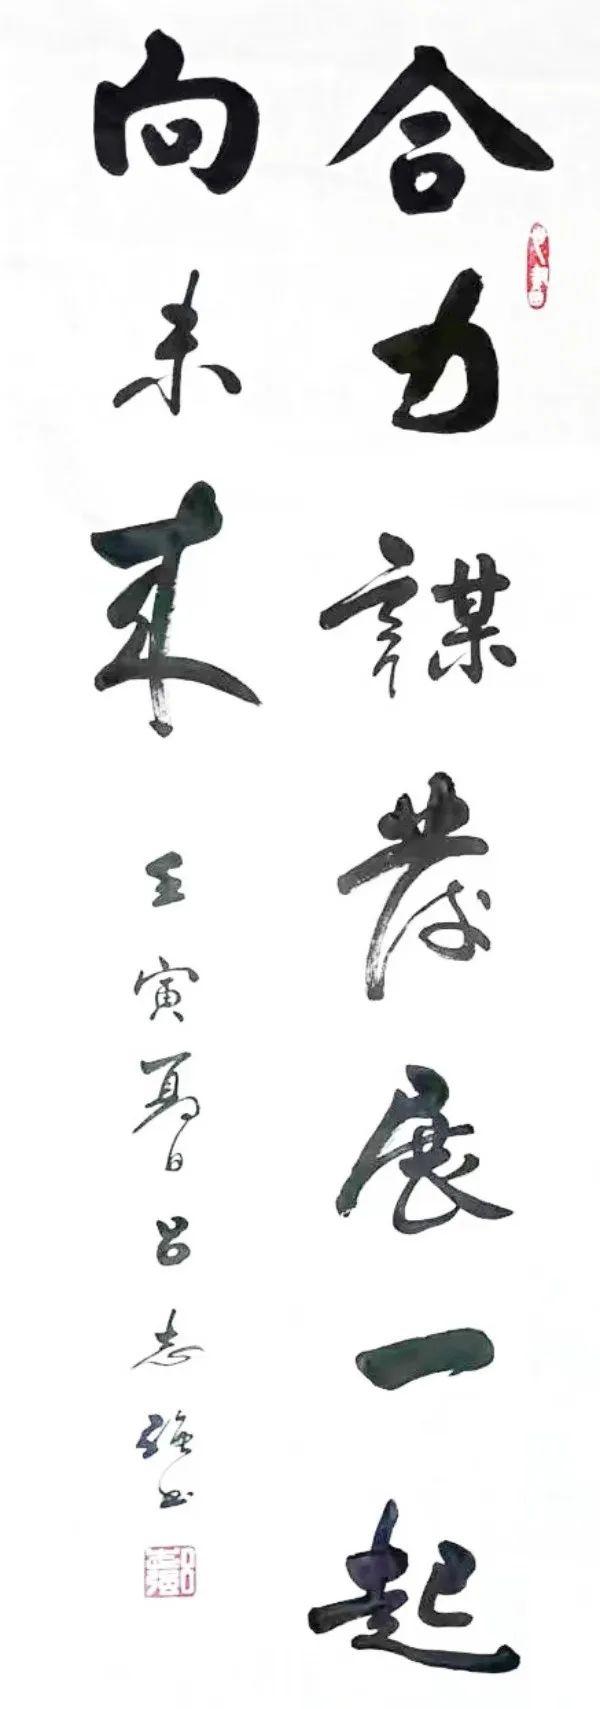 合力謀發展一起
向未来
壬寅夏日呂志強书